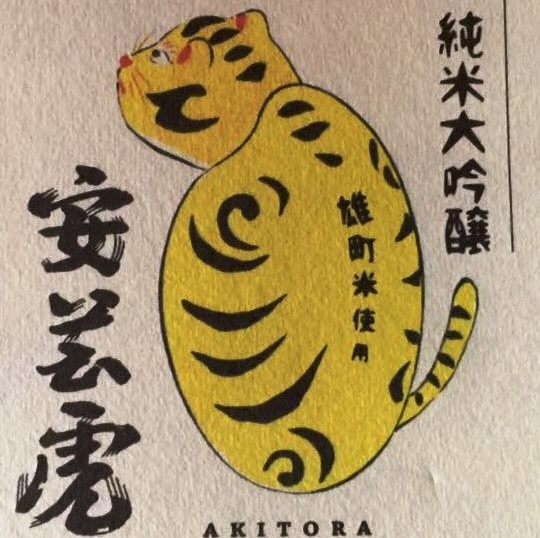 純米大吟醸
雄町米使用
安芸虎
AKITORA